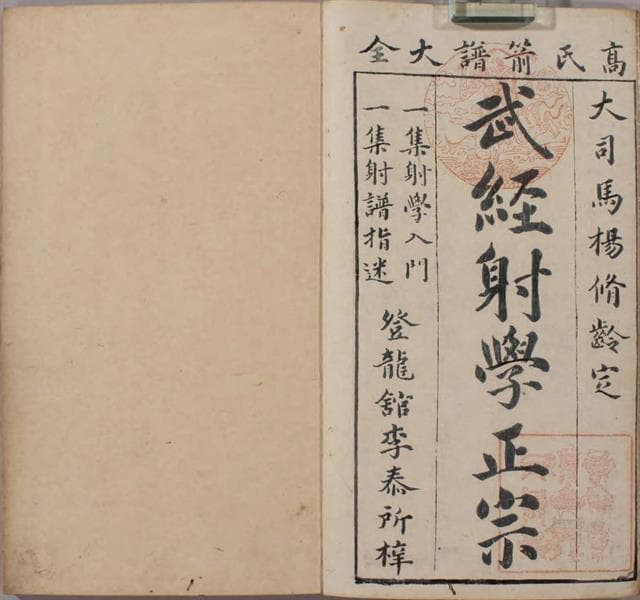 高氏箭譜大全
大司馬楊脩齡定
武經射學正宗
一集射學入門
一集射譜指迷
登龍舘李泰所梓